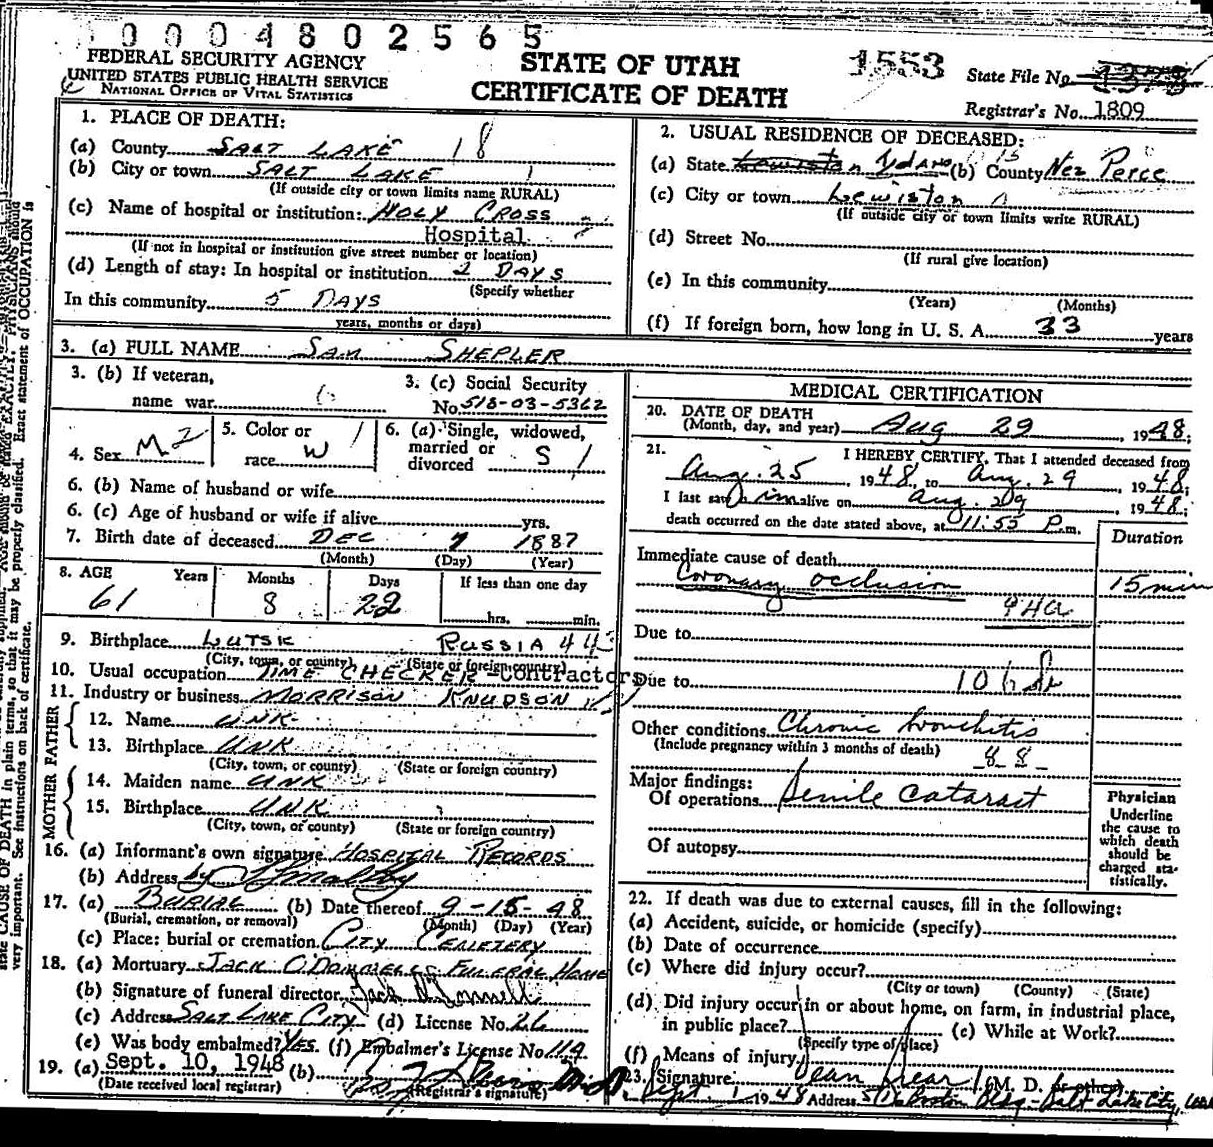 0004802565
FEDERAL SECURITY AGENCY
UNITED STATES PUBLIC HEALTH SERVICE
NATIONAL OFFICE OF VITAL STATISTICS
STATE OF UTAH
CERTIFICATE OF DEATH
1553 State File No.
Registrar's No. 1809
1. PLACE OF DEATH:
(a) County SALT LAKE 18
(b) City or town SALT LAKE 1
(If outside city or town limits name RURAL)
(c) Name of hospital or institution: HOLY CROSS
Hospital
(If not in hospital or institution give street number or location)
(d) Length of stay: In hospital or institution 2 DAYS
(Specify whether
In this community 5 DAYS
years, months or days)
2. USUAL RESIDENCE OF DECEASED:
(a) State Lewiston IDAHO (b) County Nez Perce
(c) City or town Lewiston
(If outside city or town limits write RURAL)
(d) Street No.
(If rural give location)
(e) In this community
(Years) (Months)
(f) If foreign born, how long in U. S. A. 33 years
3. (a) FULL NAME SAM SHEPLER
3. (b) If veteran,
name war
3. (c) Social Security
No. 518-03-5362
4. Sex M 2
5. Color or
race W 1
6. (a) Single, widowed,
married or
divorced S 1
6. (b) Name of husband or wife
6. (c) Age of husband or wife if alive yrs.
7. Birth date of deceased DEC 7 1887
(Month) (Day) (Year)
8. AGE Years Months Days If less than one day
61 8 22 hrs. min.
9. Birthplace LUTSK RUSSIA 44
(City, town, or county) (State or foreign country)
10. Usual occupation TIME CHECKER-Contractors
11. Industry or business MORRISON KNUDSON
FATHER
12. Name UNK
13. Birthplace UNK
(City, town, or county) (State or foreign country)
MOTHER
14. Maiden name UNK
15. Birthplace UNK
(City, town, or county) (State or foreign country)
16. (a) Informant's own signature HOSPITAL RECORDS
(b) Address by
17. (a) BURIAL (b) Date thereof 9-15-48
(Burial, cremation, or removal) (Month) (Day) (Year)
(c) Place: burial or cremation CITY CEMETERY
18. (a) Mortuary JACK O'DONNELLS FUNERAL HOME
(b) Signature of funeral director Jack O'Donnell
(c) Address SALT LAKE CITY (d) License No. 26
(e) Was body embalmed? YES. (f) Embalmer's License No. 114
19. (a) Sept. 10, 1948 (b)
(Date received local registrar) (Registrar's signature)
MEDICAL CERTIFICATION
20. DATE OF DEATH
(Month, day, and year) Aug 29, 1948;
21. I HEREBY CERTIFY, That I attended deceased from
Aug. 25, 1948, to Aug. 29, 1948;
I last saw him alive on Aug. 29, 1948;
death occurred on the date stated above, at 11:55 P.m.
Duration
Immediate cause of death
Coronary occlusion 15 min
94a
Due to
Due to
Other conditions Chronic bronchitis
(Include pregnancy within 3 months of death) 88
Major findings:
Of operations Senile Cataract
Of autopsy
Physician
Underline
the cause to
which death
should be
charged sta-
tistically.
22. If death was due to external causes, fill in the following:
(a) Accident, suicide, or homicide (specify)
(b) Date of occurrence
(c) Where did injury occur?
(City or town) (County) (State)
(d) Did injury occur in or about home, on farm, in industrial place,
in public place? (e) While at Work?
(Specify type of place)
(f) Means of injury
23. Signature (M. D. or other)
Sept. 1 1948 Address Salt Lake City, Utah